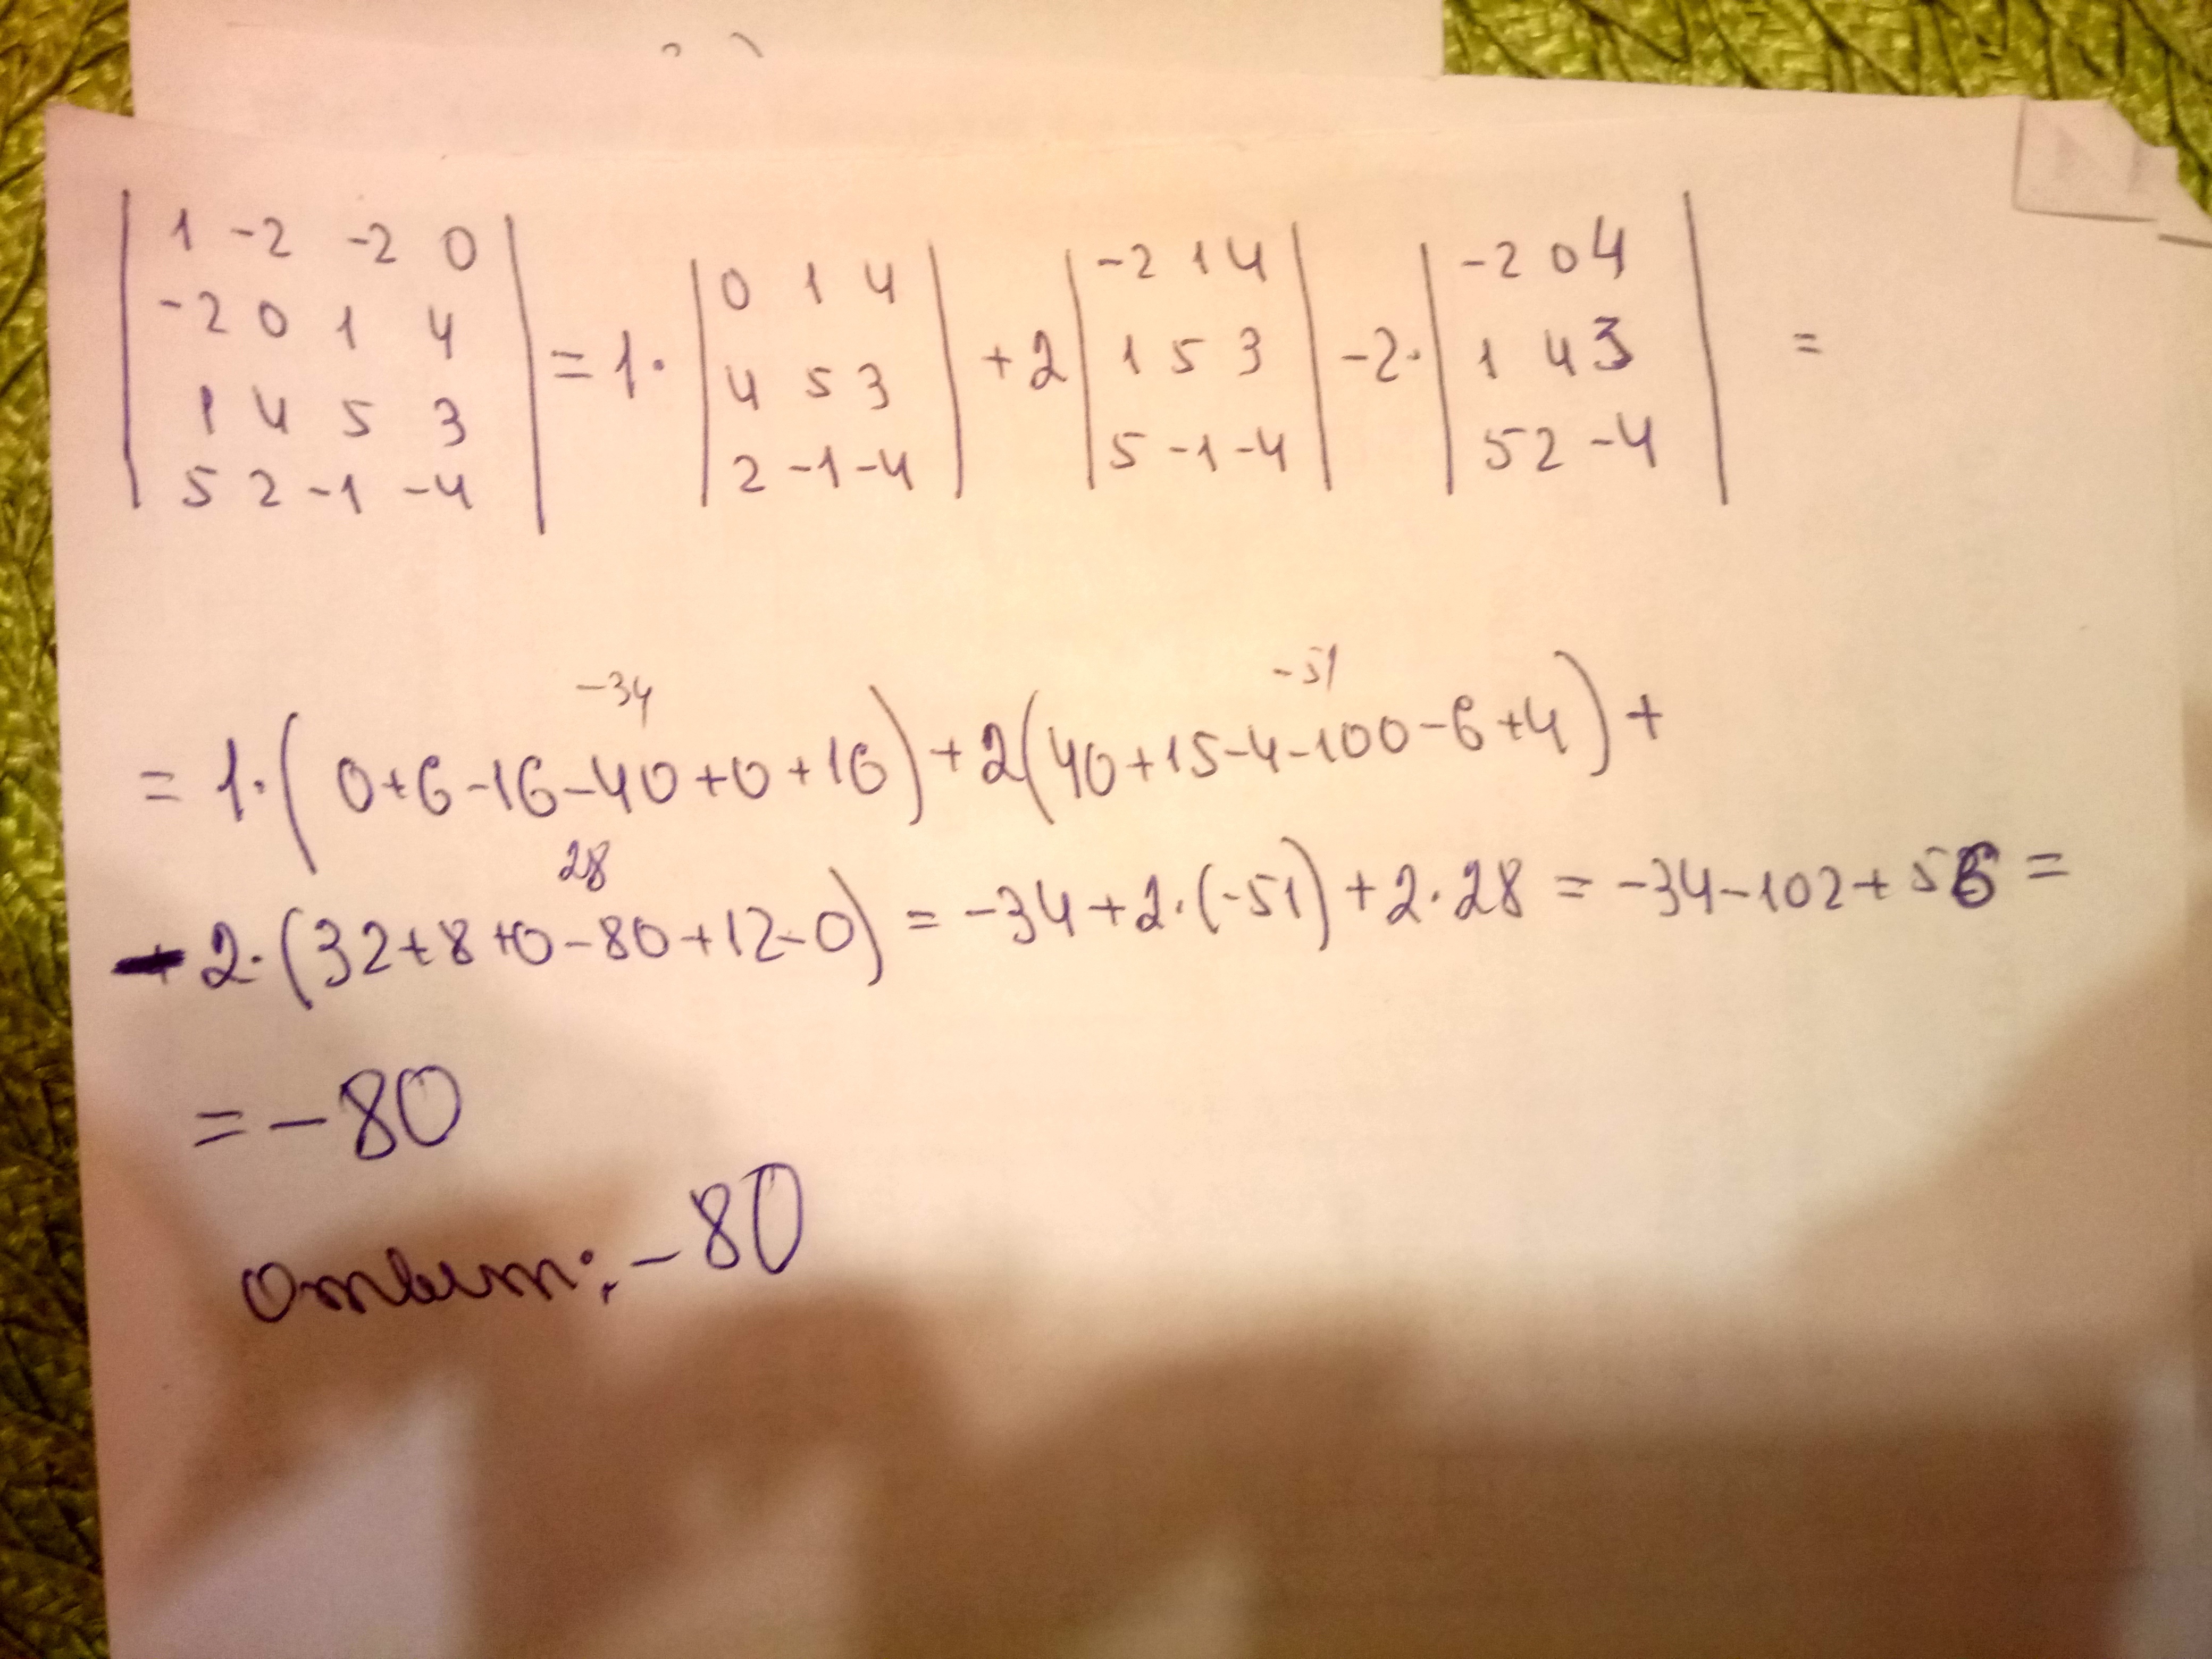 | 1 -2 -2 0 | | 0 1 4 | | -2 1 4 | | -2 0 4 |
| -2 0 1 4 | = 1· | 4 5 3 | + 2 | 1 5 3 | -2· | 1 4 3 | =
| 1 4 5 3 | | 2 -1 -4 | | 5 -1 -4 | | 5 2 -4 |
| 5 2 -1 -4 |
-34 -51
= 1·( 0+6-16-40+0+16) + 2(40+15-4-100-6+4) +
28
+ 2·(32+8+0-80+12-0) = -34+2·(-51)+2·28 = -34-102+56 =
= -80
Ответ: -80